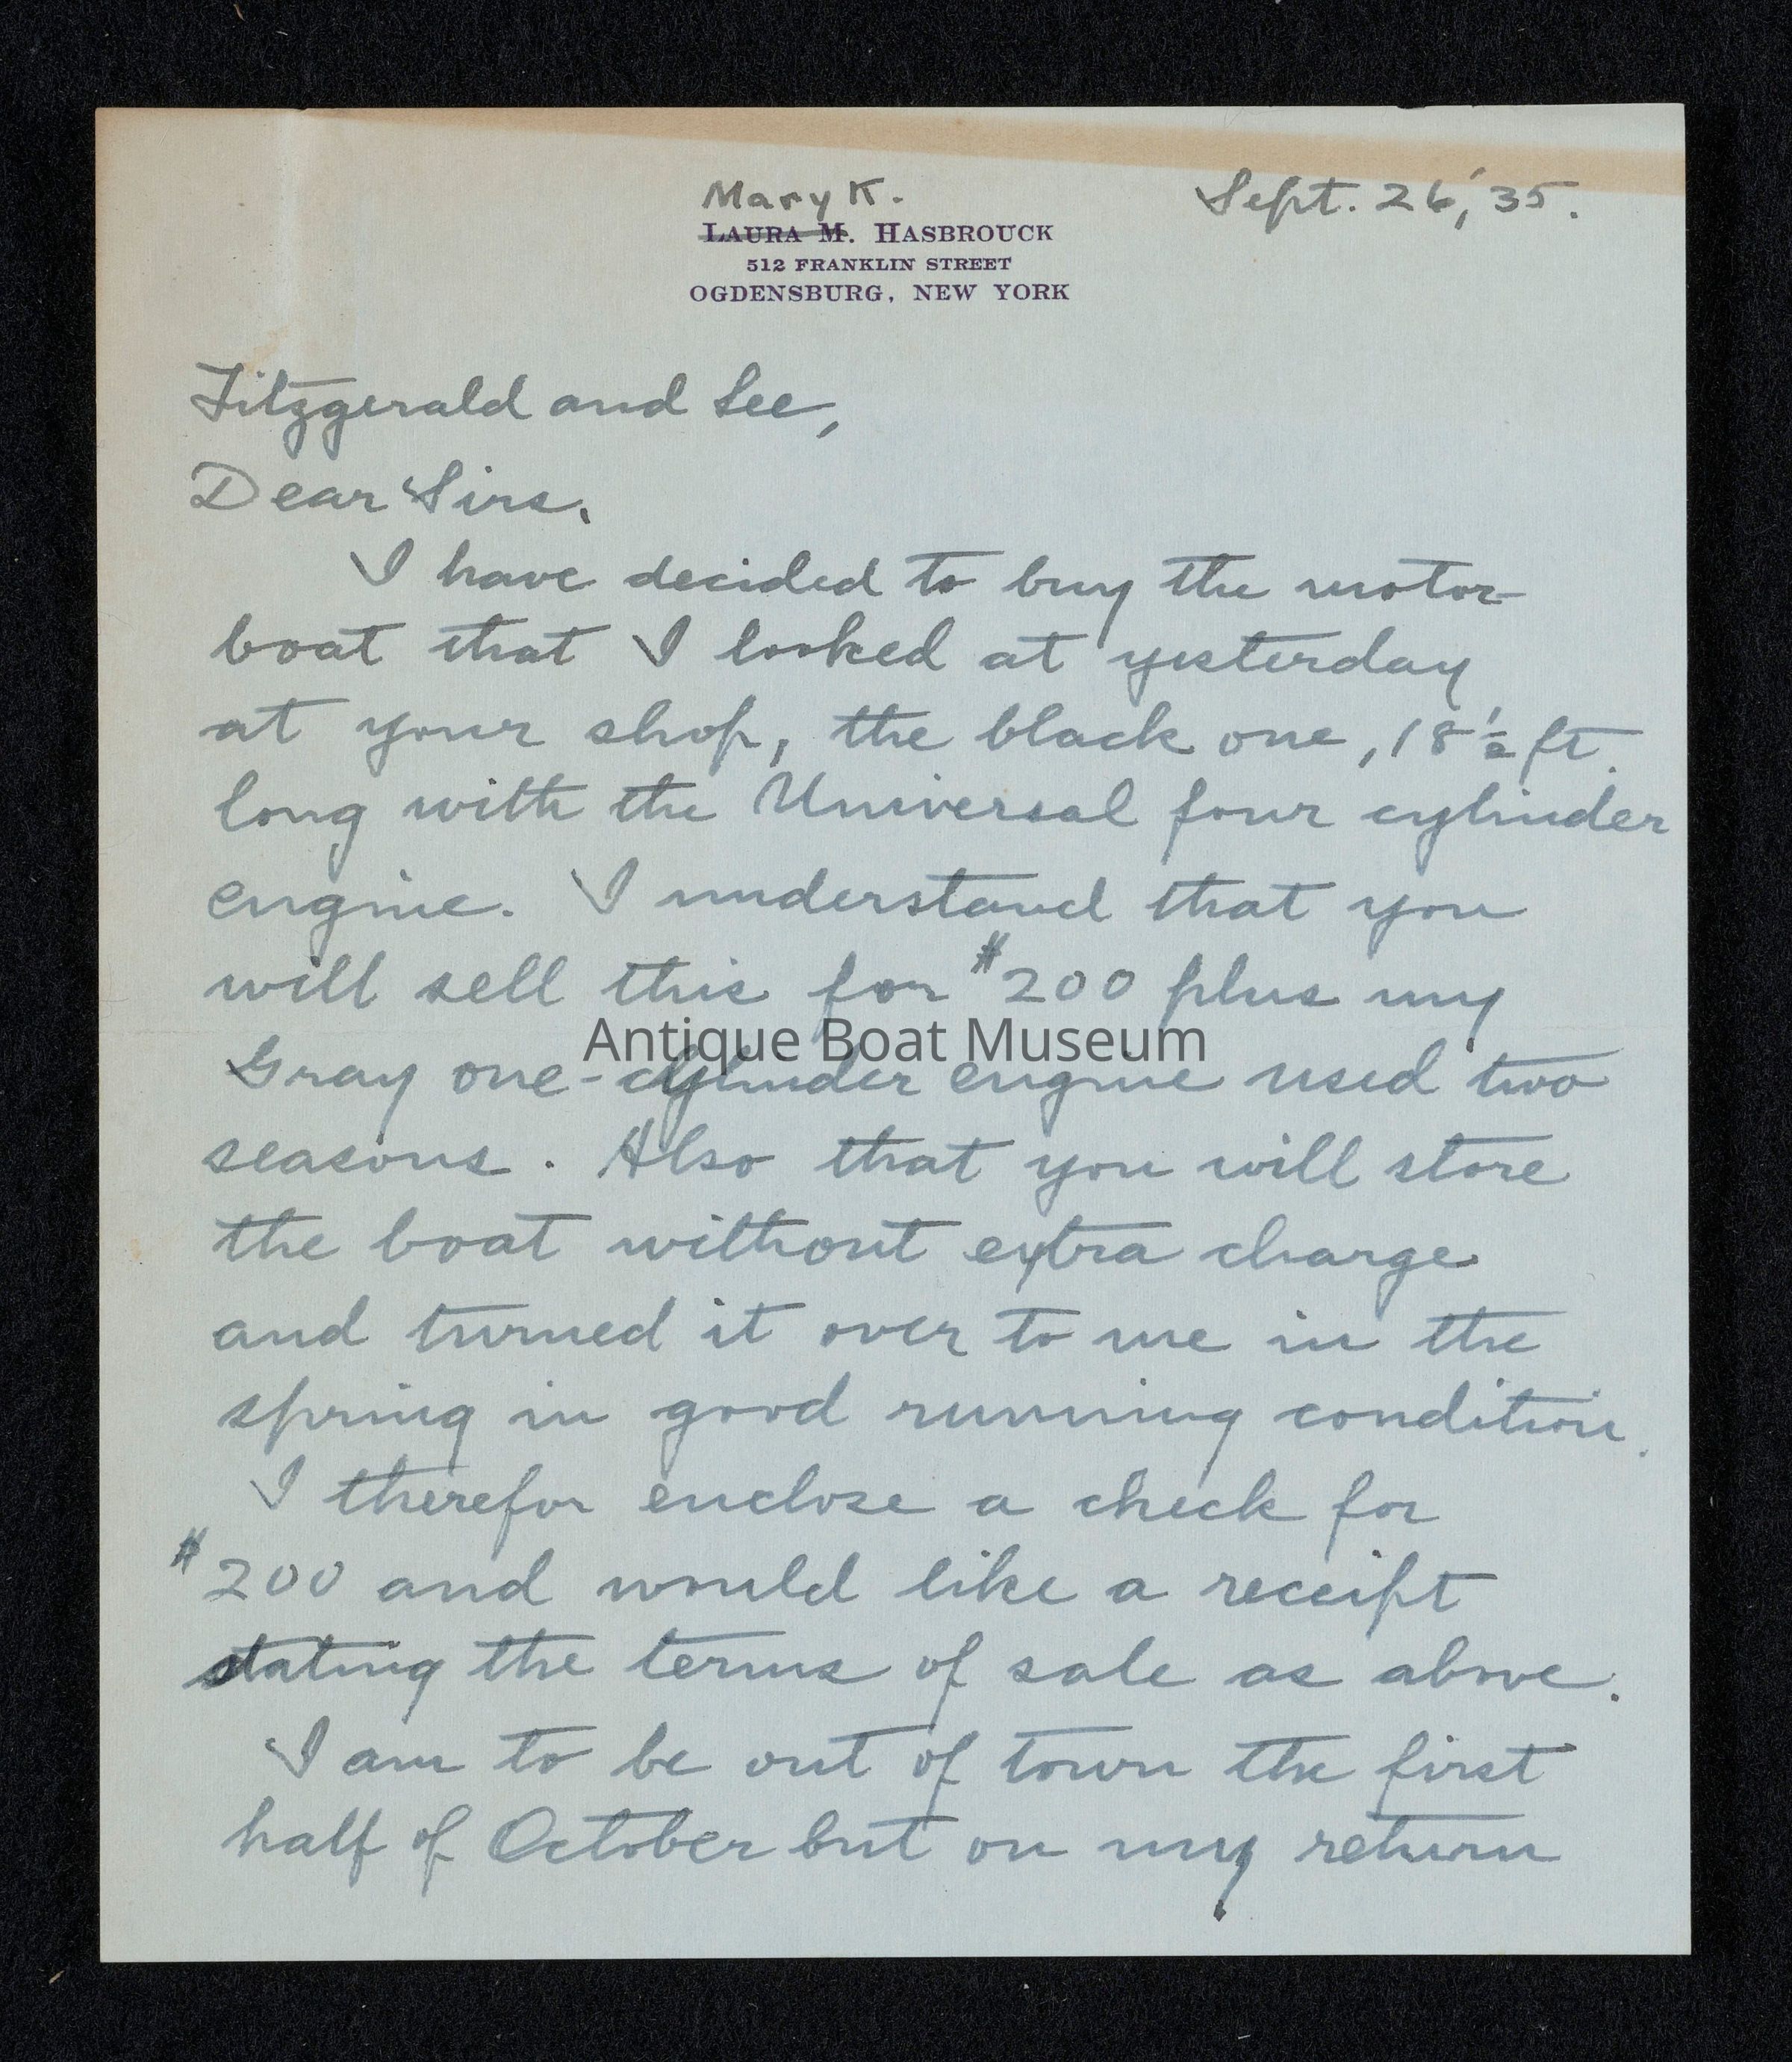 Mary K.
Sept. 26, '35.
LAURA M. HASBROUCK
512 FRANKLIN STREET
OGDENSBURG, NEW YORK
Fitzgerald and Lee,
Dear Sirs.
I have decided to buy the motor-
boat that I looked at yesterday
at your shop, the black one, 18 1/2 ft.
long with the Universal four cylinder
engine. I understand that you
will sell this for $200 plus my
Antique Boat Museum
Gray one-cylinder engine used two
seasons. Also that you will store
the boat without extra charge
and turned it over to me in the
spring in good running condition.
I therefor enclose a check for
$200 and would like a receipt
stating the terms of sale as above.
I am to be out of town the first
half of October but on my return